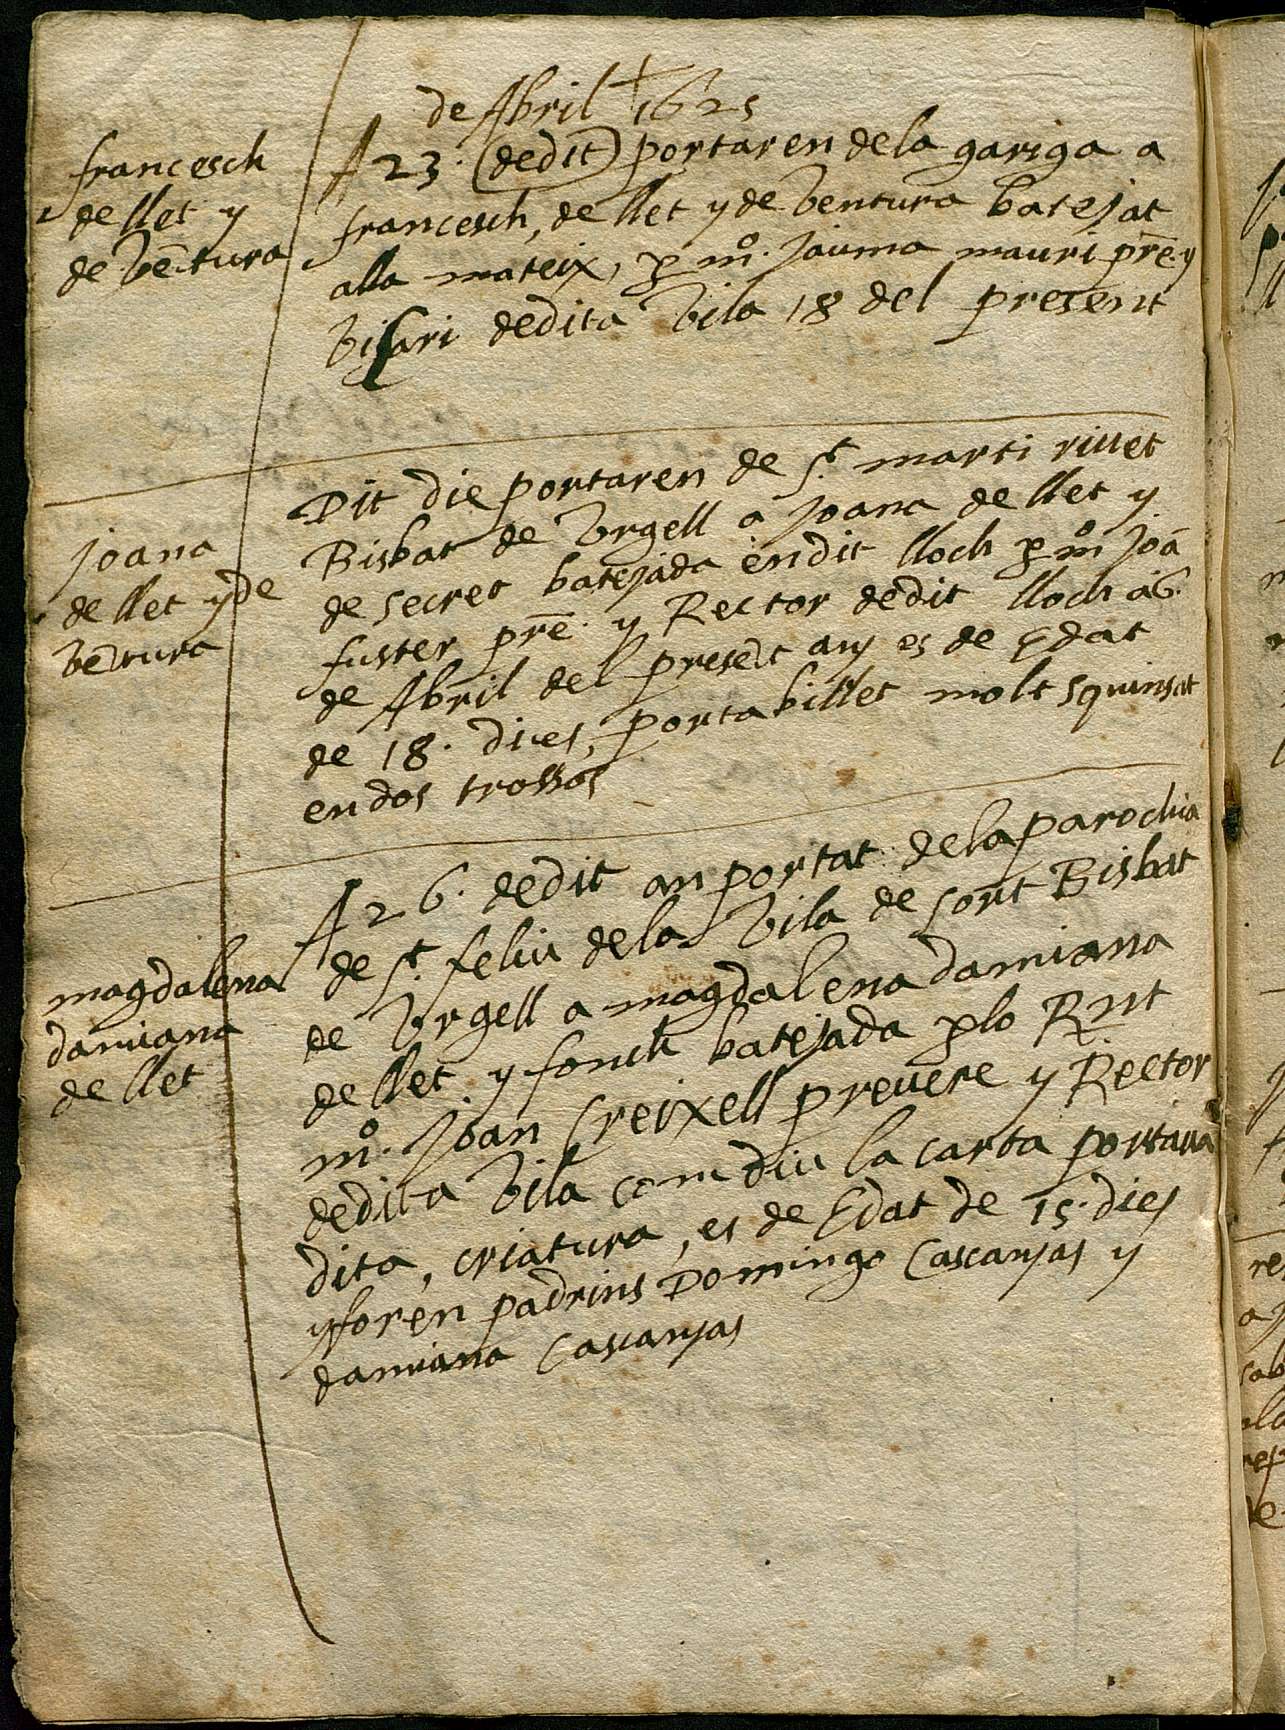 de Abril + 1625
francesch
de llet y
de vētura
A 23. (dedit) portaren dela gariga a
francesch, de llet y de Ventura batejat
alla mateix, p mº. Jauma mauri prē. y
Vicari dedita Vila 18 del present
Joana
de llet y de
vētura
Dit die portaren de St. marti
Bisbat de Vrgell a Joana de llet y
de secret batejada en dit lloch p mº Joā
fuster prē. y Rector dedit lloch a 6.
de Abril del present any es de Edat
de 18. dies, porta billet molt squinsat
en dos trossos
magdalena
damiana
de llet
A 26. dedit an portat dela parochia
de St. feliu dela Vila de sort Bisbat
de Vrgell a magdalena damiana
de llet y fonch batejada plo Rnt
mº. Joan Creixell preuere y Rector
dedita Vila com diu la carta portaua
dita, criatura, es de Edat de 15. dies
y foren padrins Domingo Cascanjas y
damiana Cascanjas